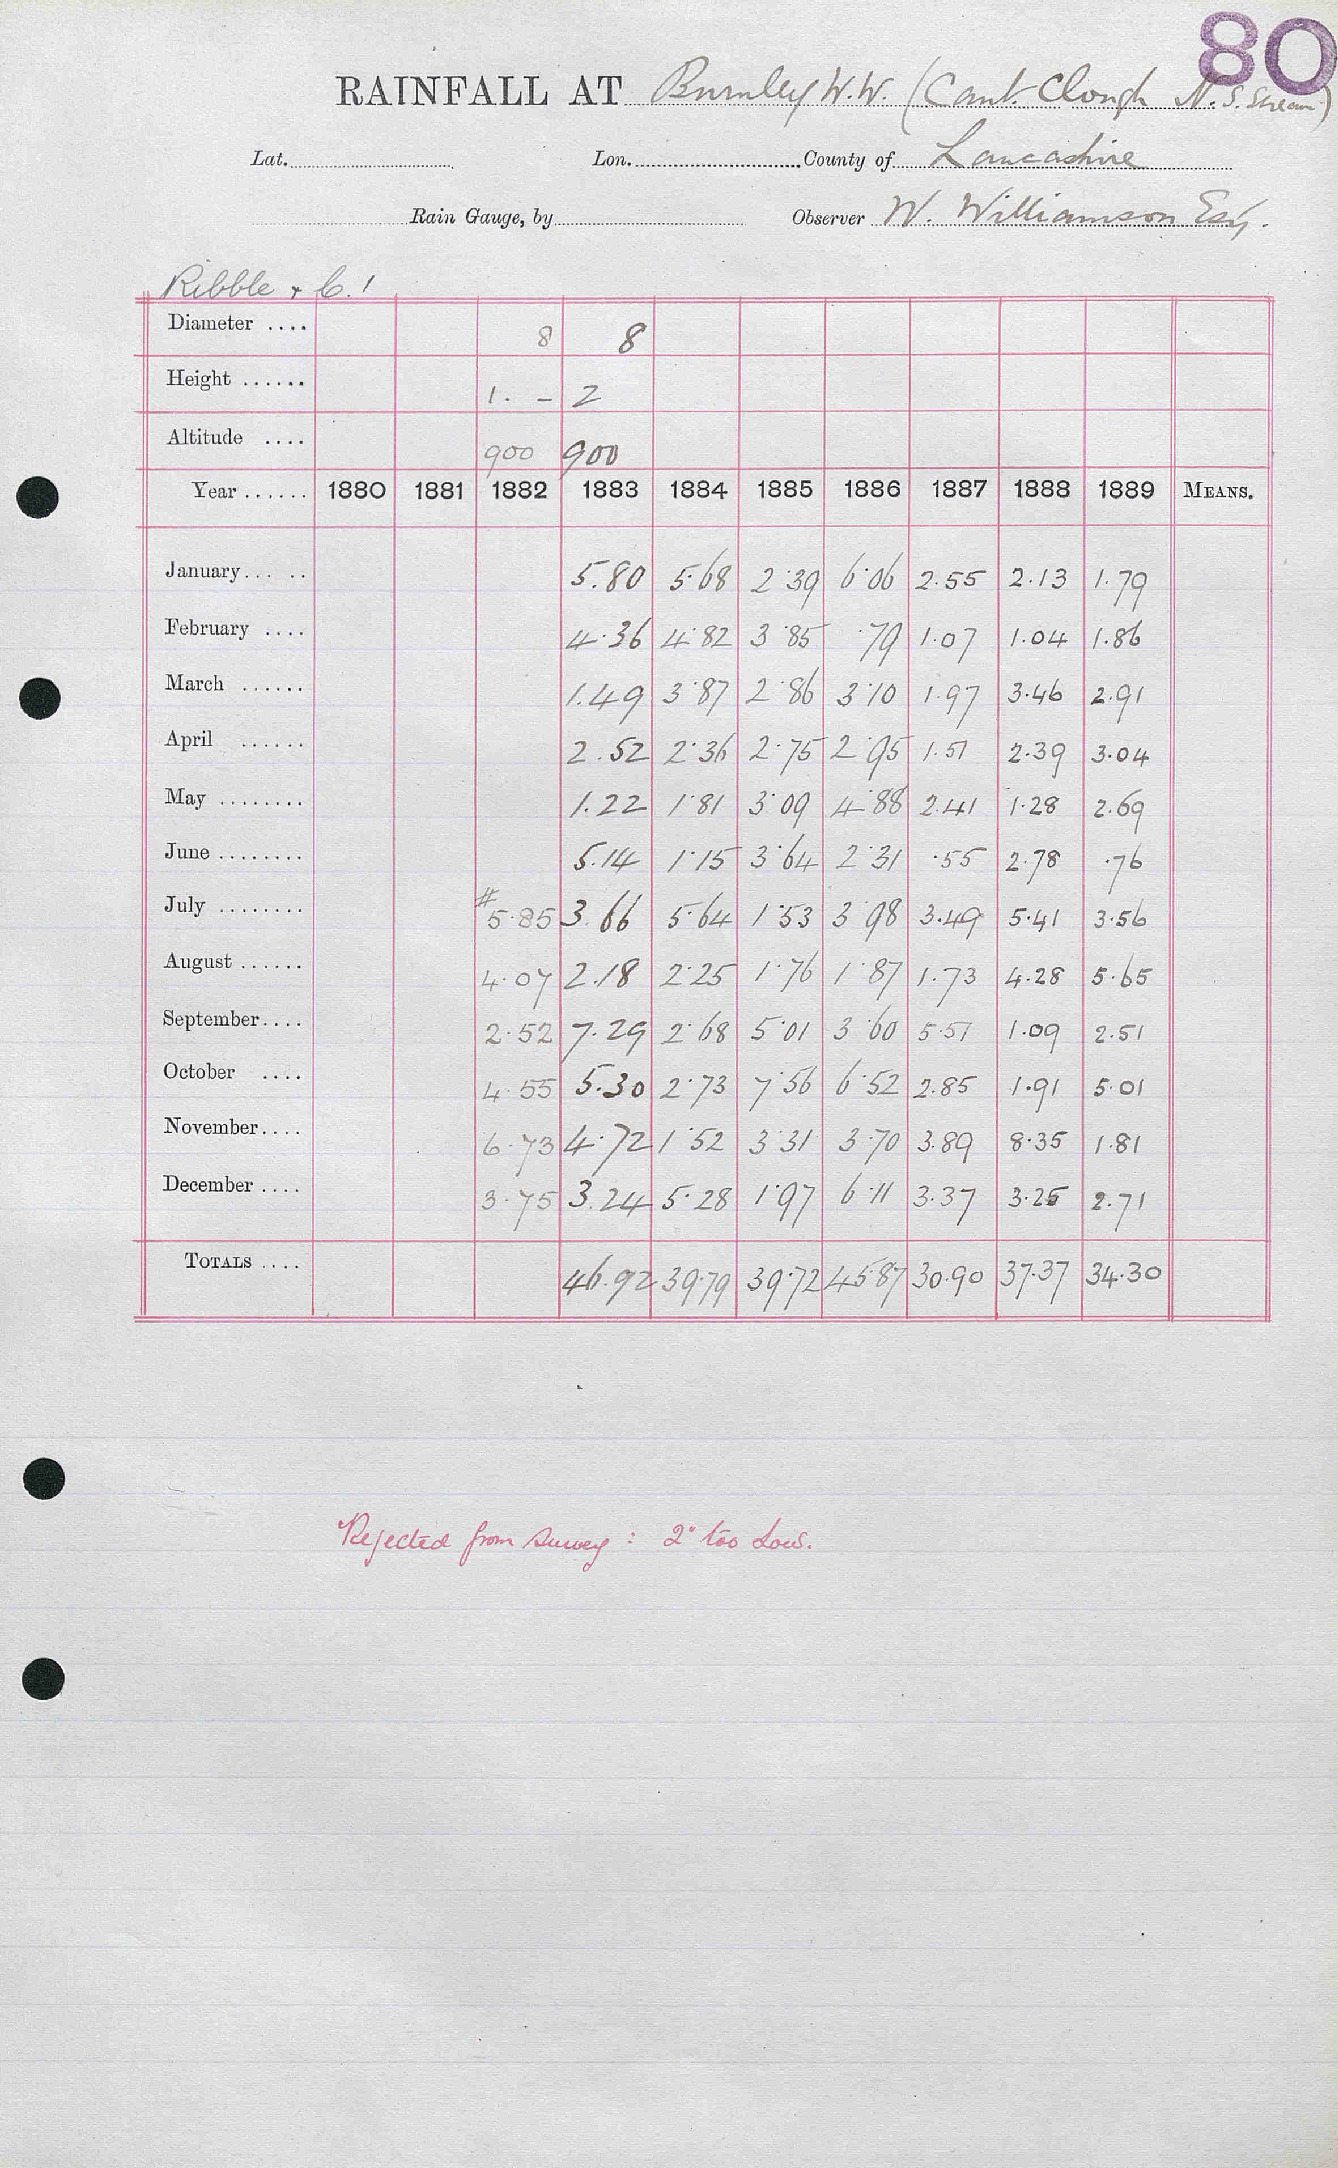 80
RAINFALL AT Burnley W.W. (Cant Clough N. S. Stream)
Lat. Lon. County of Lancashire
Rain Gauge, by Observer W. Williamson Esq.
Ribble & C.!
Diameter .... 8 8
Height ...... 1. - 2
Altitude .... 900 900
Year ...... 1880 1881 1882 1883 1884 1885 1886 1887 1888 1889 MEANS.
January... .. 5.80 5.68 2.39 6.06 2.55 2.13 1.79
February .... 4.36 4.82 3.85 .79 1.07 1.04 1.86
March ...... 1.49 3.87 2.86 3.10 1.97 3.46 2.91
April ...... 2.52 2.36 2.75 2.95 1.51 2.39 3.04
May ........ 1.22 1.81 3.09 4.88 2.41 1.28 2.69
June ........ 5.14 1.15 3.64 2.31 .55 2.78 .76
July ........ # 5.85 3.66 5.64 1.53 3.98 3.49 5.41 3.56
August ...... 4.07 2.18 2.25 1.76 1.87 1.73 4.28 5.65
September.... 2.52 7.29 2.68 5.01 3.60 5.51 1.09 2.51
October .... 4.55 5.30 2.73 7.56 6.52 2.85 1.91 5.01
November.... 6.73 4.72 1.52 3.31 3.70 3.89 8.35 1.81
December .... 3.75 3.24 5.28 1.97 6.11 3.37 3.25 2.71
TOTALS .... 46.92 39.79 39.72 45.87 30.90 37.37 34.30
Rejected from Survey : 2" too Low.